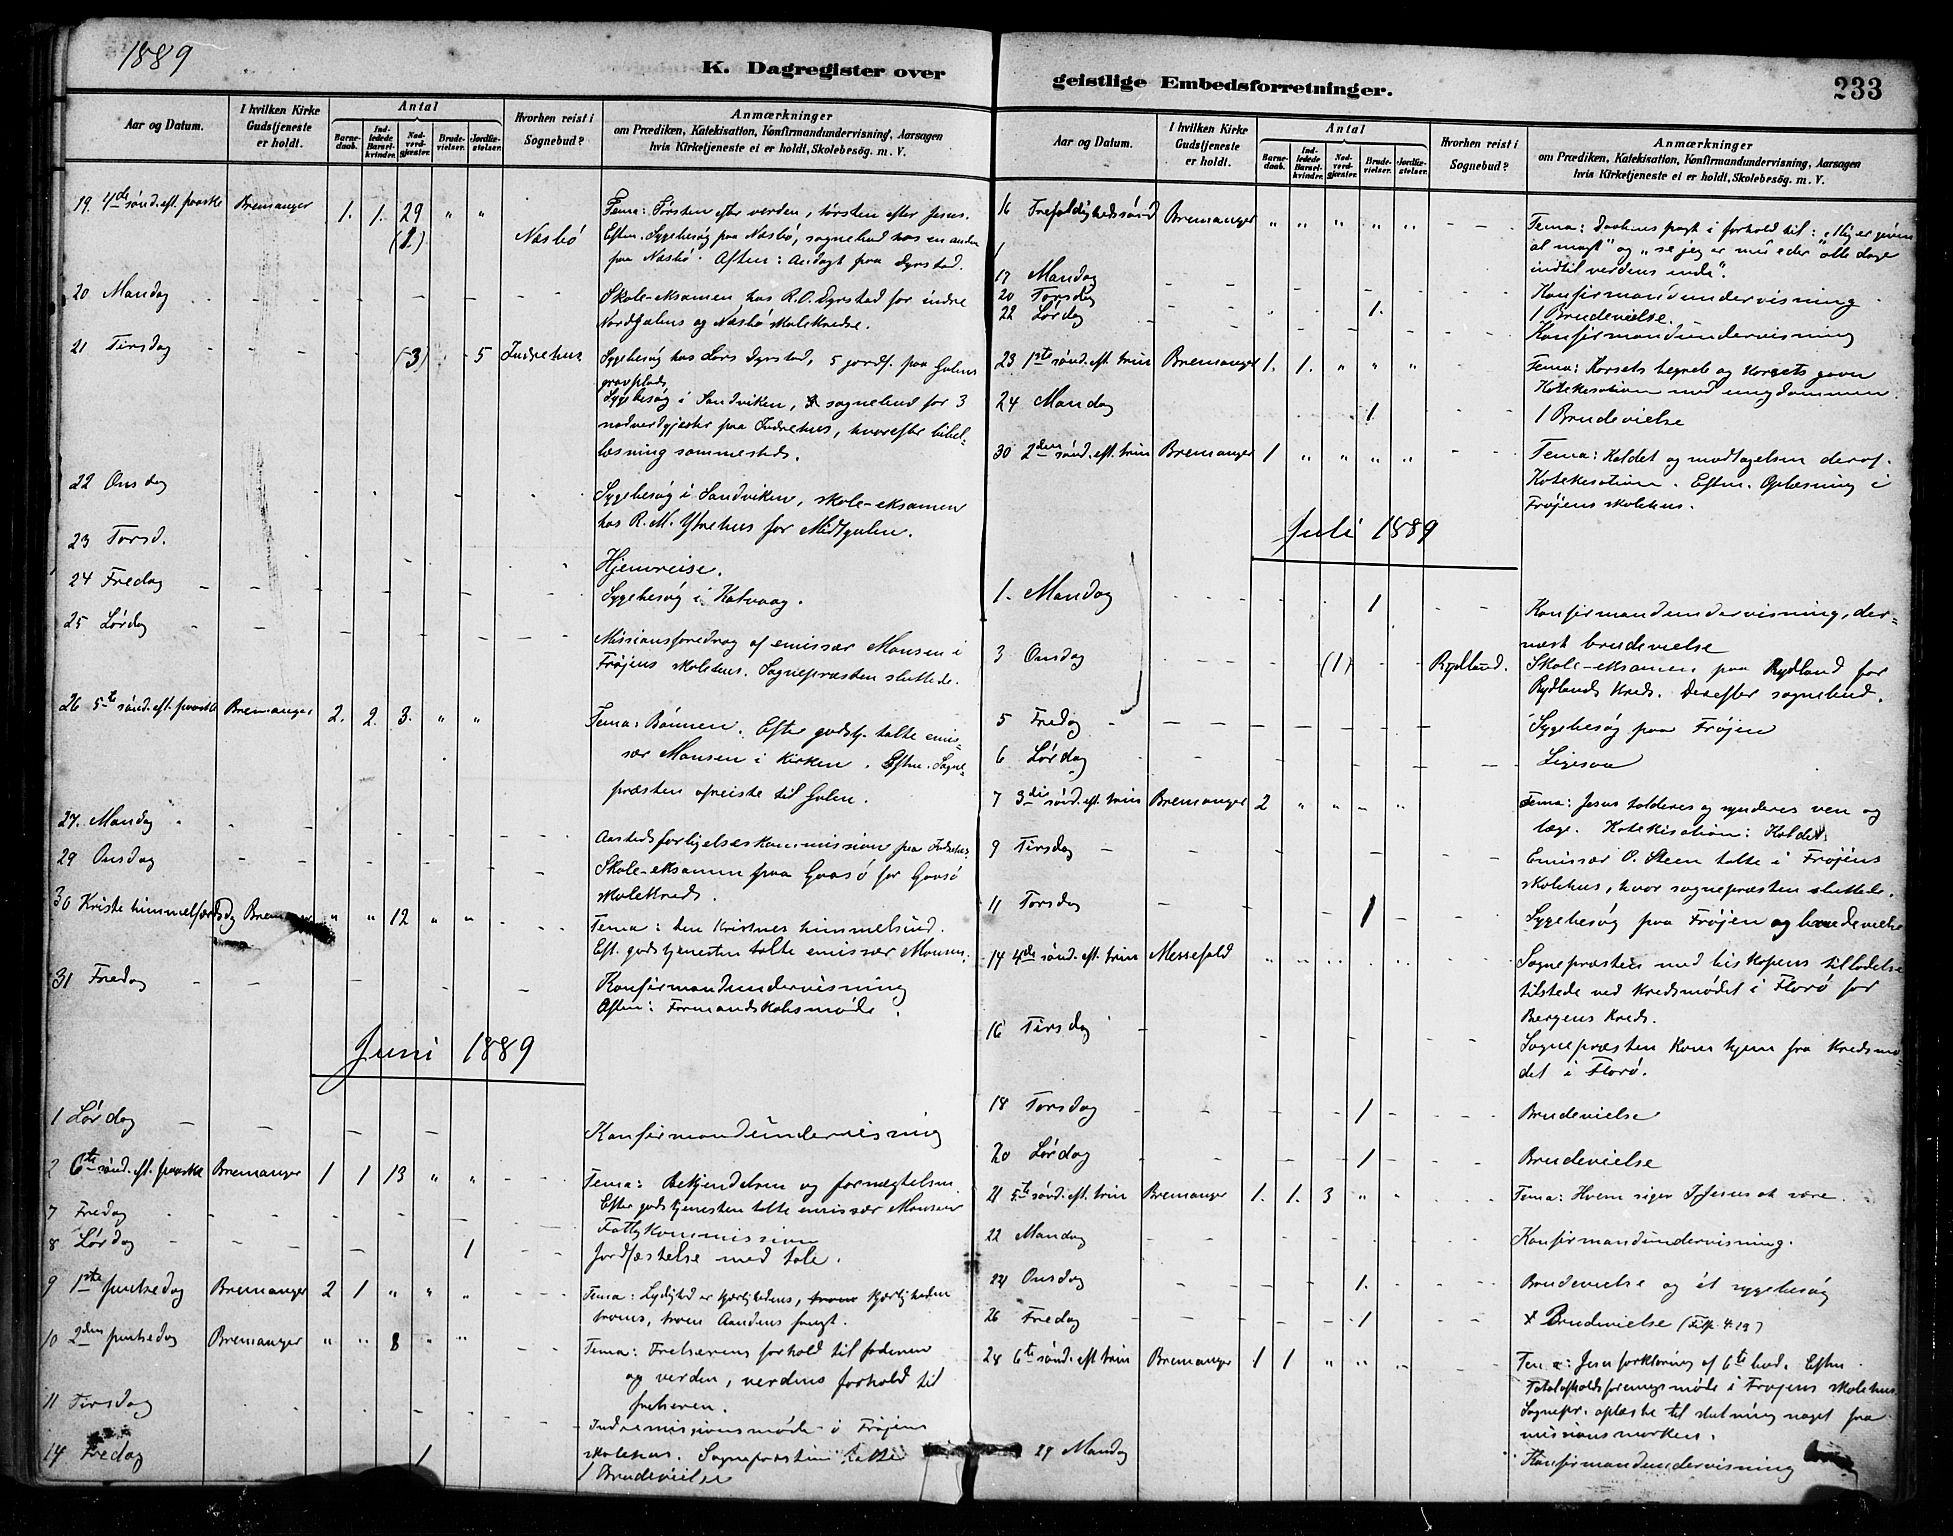 1889
K. Dagregister over
Aar og Datum.
I hvilken Kirke Gudstjeneste er holdt.
Antal
Barnedaab.
Indledede Barselkvinder.
Nadverdgjæster.
Brudevielser.
Jordfæstelser.
Hvorhen reist i Sognebud?
Anmærkninger
om Prædiken, Katekisation, Konfirmandundervisning, Aarsagen
hvis Kirketjeneste ei er holdt, Skolebesög. m. V.
19. 4de sönd. eft. paaske Bremanger 1. 1. 29 " " Tema: Törsten efter verden, törsten efter Jesus.
(1) Næsbö Eftm. Sygebesög paa Næsbö, sognebud hos en anden
paa Næsbö. Aften: Andagt paa Dyrstad.
20 Mandag Skole-eksamen hos R.O. Dyrstad for indre
Nordgulens og Næsbö skolekredse.
21 Tirsdag (3) 5 Indrehus Sygebesög hos Lars Dyrstad, 5 jordf. paa Gulens
gravplads
Sygebesög i Sandviken, sognebud for 3
nadverdgjester paa Indrehus, hvorefter bibel-
læsning sammesteds.
22 Onsdag Sygebesög i Sandviken, skole-eksamen
hos R. M. Ytrehus for Midtgulen.
23 Torsd. Hjemreise.
24 Fredag Sygebesög i Kalvaag.
25 Lördag Missionsforedrag af emissær Monsen i
Fröjens skolehus. Sognepræsten sluttede.
26 5te sönd. eft. paaske Bremanger 2. 2. 3. " " Tema: Bönnen. Efter gudstj. talte emis-
sær Monsen i kirken. Eftm. Sogne-
præsten afreiste til Gulen.
27. Mandag Aastedsforligelseskommission paa Indrehus.
29 Onsdag Skole-eksamen paa Gaasö for Gaasö
skolekreds.
30 Kristi himmelfartsdg Bremanger " " 12 " " Tema: den kristnes himmelsind.
Eft. gudstjenesten talte emissær Monsen.
31 Fredag Konfirmandundervisning
Aften: Formandskabsmöde.
Juni 1889
1 Lördag Konfirmandundervisning
2 6te sönd. eft. paaske Bremanger 1 1 13 " " Tema: Bekjendelsen og fornegtelsen.
Efter gudstjenesten talte emissær Monsen
7 Fredag Fattigkommission
8 Lördag 1 Jordfæstelse med tale.
9 1ste pintsedag Bremanger 2 1 " " " Tema: Lydighed er kjærlighedens, kjærligheden
troens, troen Aandens frugt.
10 2den pintsedag Bremanger " " 8 " " Tema: Frelserens forhold til faderen
og verden, verdens forhold til
frelseren.
11 Tirsdag Indremissionsmöde i Fröjens
skolehus. Sognepræsten talte
14 Fredag 1 1 Brudevielse
geistlige Embedsforretninger.
233
Aar og Datum.
I hvilken Kirke Gudstjeneste er holdt.
Antal
Barnedaab.
Indledede Barselkvinder.
Nadverdgjæster.
Brudevielser.
Jordfæstelser.
Hvorhen reist i Sognebud?
Anmærkninger
om Prædiken, Katekisation, Konfirmandundervisning, Aarsagen
hvis Kirketjeneste ei er holdt, Skolebesög. m. V.
16 Trefoldighedssönd Bremanger " " " " " Tema: Daabens pagt i forhold til: "Mig er given
al magt" og "se jeg er med eder alle dage
indtil verdens ende".
17 Mandag Konfirmandundervisning
20 Torsdag 1 Brudevielse.
22 Lördag 1. Konfirmandundervisning
23 1ste sönd. eft. trin Bremanger 1. 1. " " " Tema: Korsets tegnet og korsets gaver
Katekisation med ungdommen.
24 Mandag 1 1 Brudevielse
30 2den sönd. eft. trin Bremanger 1 " " " " Tema: Kaldet og modtagelsen deraf.
Katekisation. Eftm. Oplæsning i
Fröjens skolehus.
Juli 1889
1. Mandag 1 Konfirmandundervisning, der-
næst brudevielse
3 Onsdag (1) Rydland. Skole-eksamen paa Rydland for
Rydlands kreds. Derefter sognebud.
5 Fredag Sygebesög paa Fröjen
6 Lördag Ligesaa
7 3die sönd. eft. trin Bremanger 2 " " " " Tema: Jesus tolderes og synderes ven og
læge. Katekisation: Kaldet.
9 Tirsdag Emissær O. Steen talte i Fröjens
skolehus, hvor sognepræsten sluttede.
11 Torsdag 1 Sygebesög paa Fröjen og brudevielse
14 4de sönd. eft. trin Messefald " " " " " Sognepræsten med biskopens tilladelse
tilstede ved kredsmödet i Florö for
Bergens kreds.
16 Tirsdag Sognepræsten kom hjem fra kredsmö-
det i Florö.
18 Torsdag 1 Brudevielse
20 Lördag 1 Brudevielse
21 5te sönd. eft. trin Bremanger 1. 1. 3 " " Tema: Hvem siger I Jesus at være.
22 Mandag Konfirmandundervisning.
24 Onsdag 1. Brudevielse og ét sygebesög
26 Fredag 1 Brudevielse (Filip. 4.19)
28 6te sönd. eft trin Bremanger 1 1 " " " Tema: Jesu forklaring af 6te bud. Eftm.
Totalafholdsforeningsmöde i Fröjens skolehus.
Sognepr. oplæste til slutning noget fra
missionsmarken.
29 Mandag Konfirmandundervisning